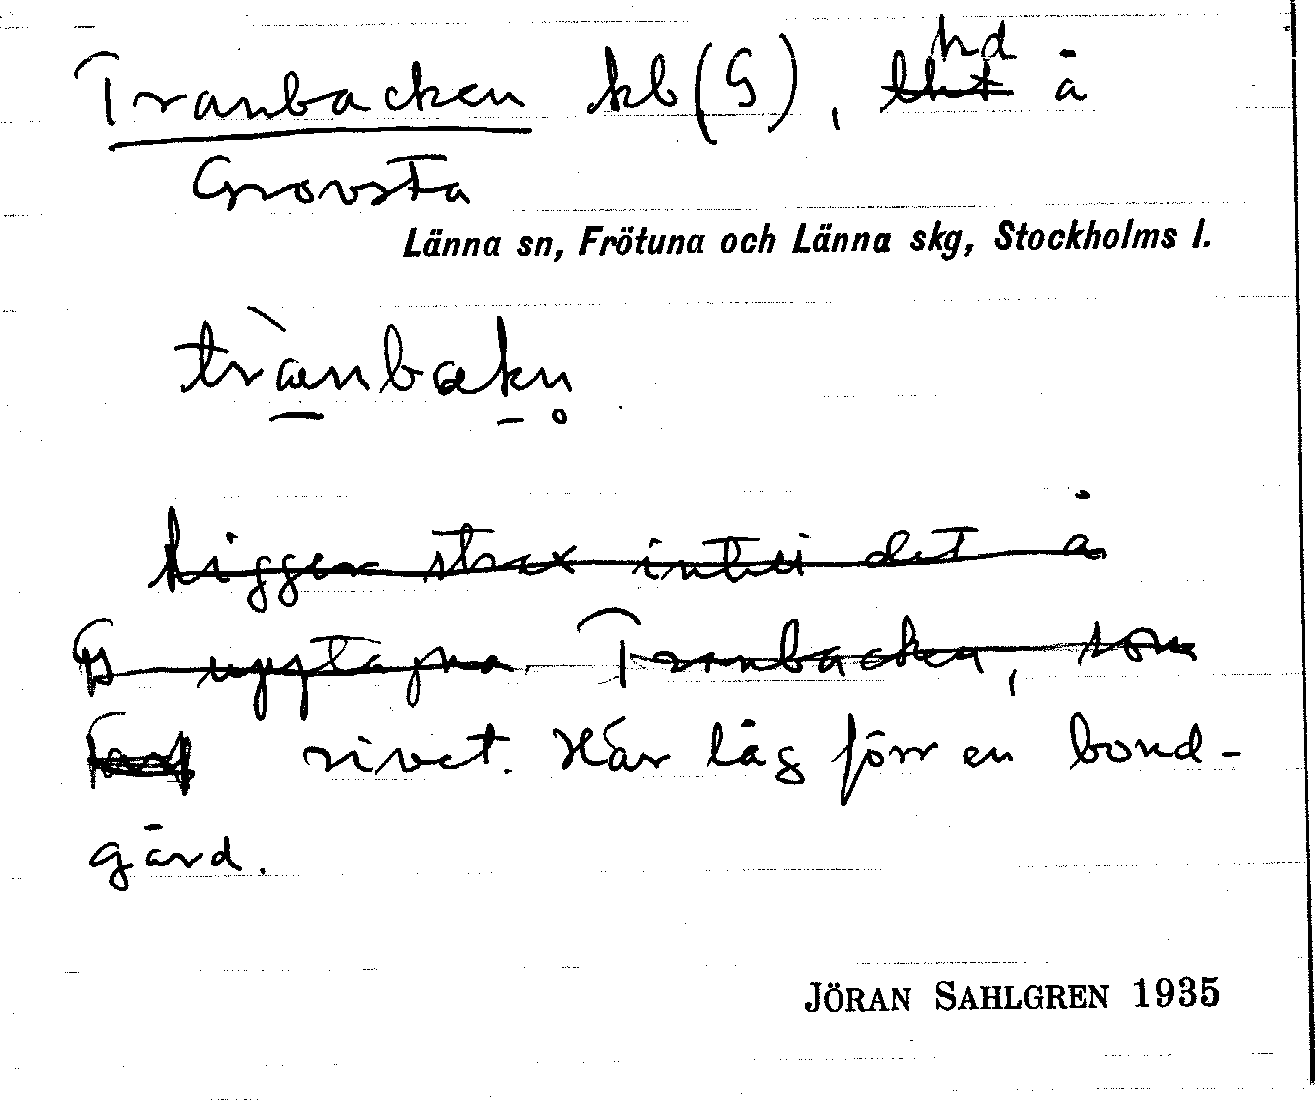 Tranbacken kb (G), hd å
Grovsta
Länna sn, Frötuna och Länna skg, Stockholms l.
trànbakn̥
Ligger strax intill det å
G upptagna Tranbacken, som
rivet. Här låg förr en bond-
gård.
JÖRAN SAHLGREN 1935